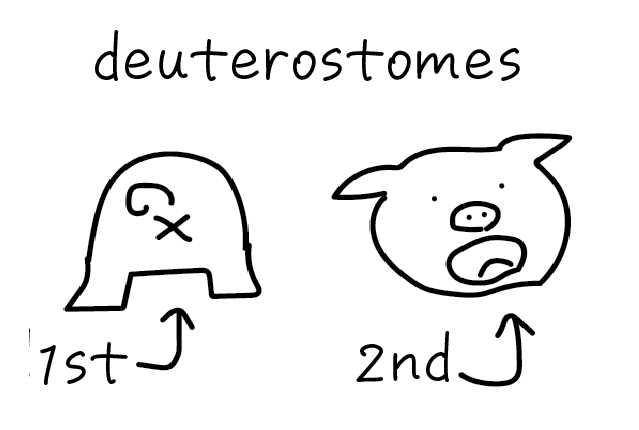 deuterostomes
1st
2nd